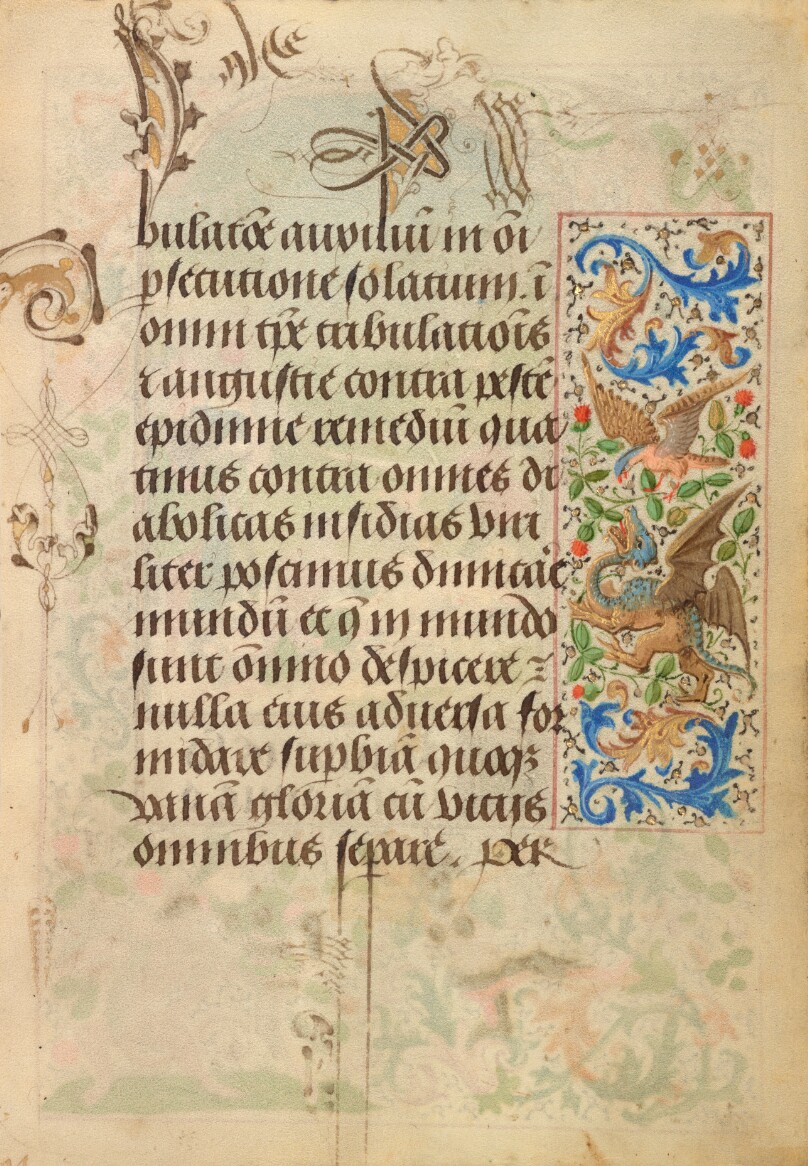 bulatoꝝ auxiliū in oī
ꝑsecutione solatium. ī
omni tꝑe tribulatiōis
⁊ angustie contra pestē
epidimie remediū qua
tinus contra omnes di
abolicas insidias viri
liter possimus diuitias
mundū et q̄ in mundo
sunt ōnino despicere ⁊
nulla eius aduersa for
midare supbiā quoqꝫ
vanā gloriā cū vicijs
omnibus separē. Per